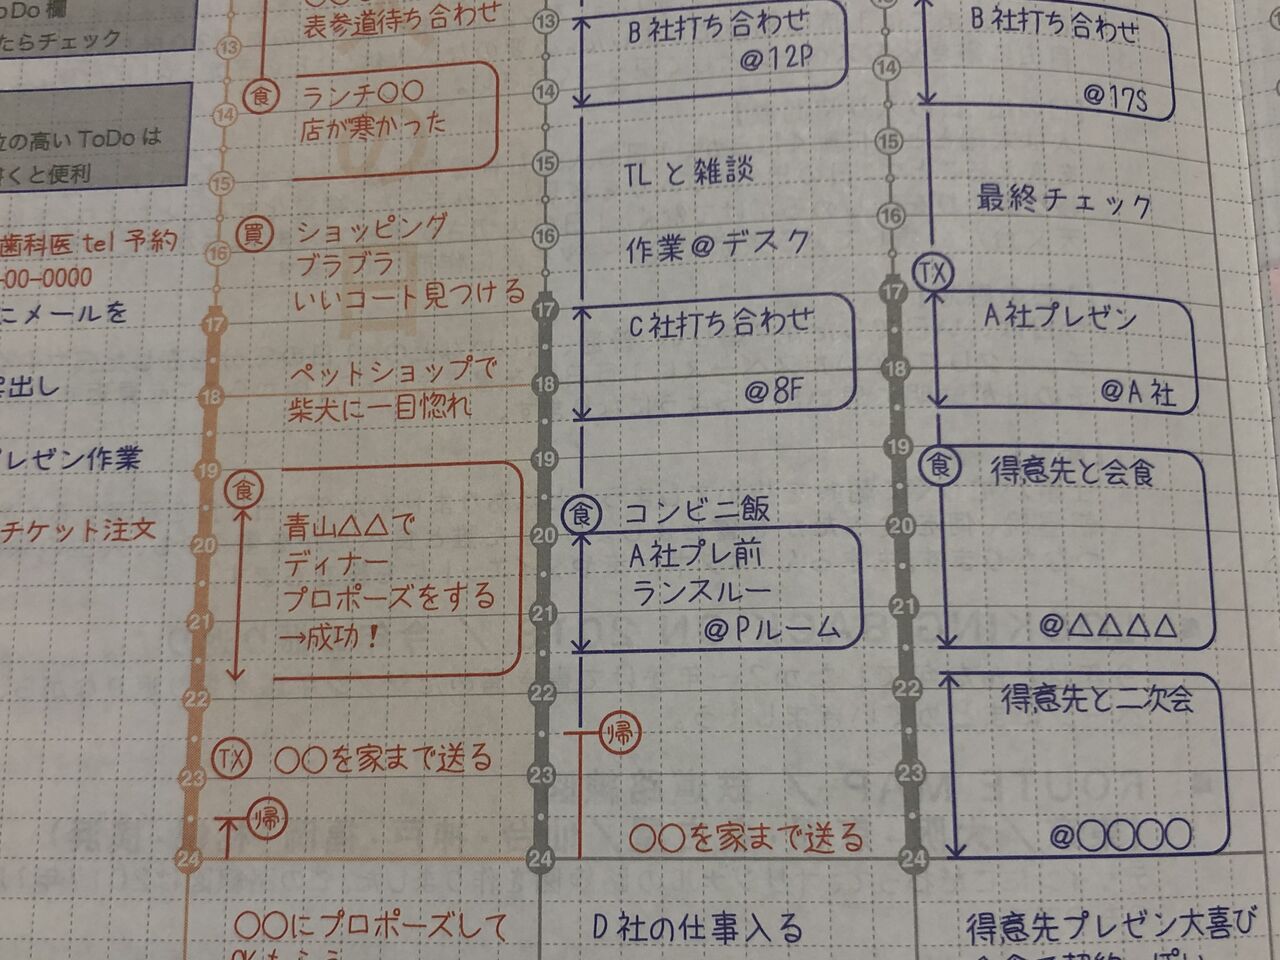 ToDo 欄
たらチェック
位の高い ToDo は
書くと便利
歯科医 tel 予約
-00-0000
にメールを
出し
プレゼン作業
チケット注文
表参道待ち合わせ
13
食
ランチ○○
14
店が寒かった
15
買
ショッピング
16
ブラブラ
いいコート見つける
17
ペットショップで
18
柴犬に一目惚れ
19
食
青山△△で
20
ディナー
プロポーズをする
21
→成功！
22
TX
○○を家まで送る
23
帰
24
○○にプロポーズして
13
B社打ち合わせ
@12P
14
15
TLと雑談
16
作業@デスク
17
C社打ち合わせ
18
@8F
19
食
コンビニ飯
20
A社プレ前
ランスルー
21
@Pルーム
22
帰
23
○○を家まで送る
24
D社の仕事入る
B社打ち合わせ
14
@17S
15
最終チェック
16
TX
17
A社プレゼン
18
@A社
19
食
得意先と会食
20
21
@△△△△
22
得意先と二次会
23
@○○○○
24
得意先プレゼン大喜び